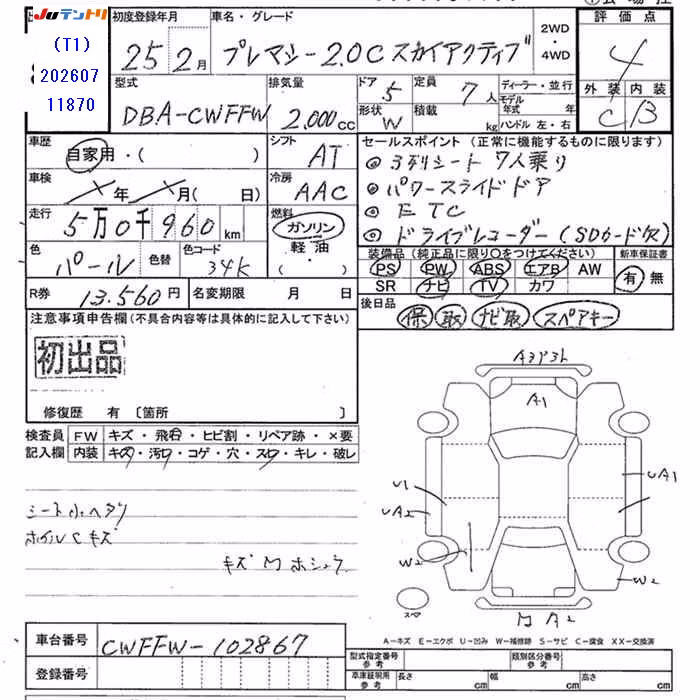 Juテントリ
(T1)
202607
11870
初度登録年月
25 2月
車名・グレード
プレマシー 2.0C スカイアクティブ
2WD
・
4WD
評価点
4
外装 内装
C B
型式
DBA-CWFFW
排気量
2,000cc
ドア
5
定員
7人
形状
W
積載
kg
ディーラー・並行
モデル年式 年
ハンドル 左・右
車歴
自家用・( )
シフト
AT
車検
年 月( 日)
冷房
AAC
走行
5万0千960km
燃料
ガソリン
軽油
( ・ )
色
パール
色替
色コード
34K
セールスポイント (正常に機能するものに限ります)
◎ 3列シート 7人乗り
◎ パワースライドドア
◎ ETC
◎ ドライブレコーダー(SDカード欠)
装備品(純正品に限り○をつけてください)
新車保証書
PS PW ABS エアB AW
SR ナビ TV カワ
有 無
R券
13,560円
名変期限 月 日
後日品
保 取 ナビ取 スペアキー
注意事項申告欄(不具合内容等は具体的に記入して下さい)
初出品
修復歴 有 〔箇所 〕
検査員
記入欄
FW キズ・飛石・ヒビ割・リペア跡・×要
内装 キズ・汚れ・コゲ・穴・スレ・キレ・破レ
シート小ヘタリ
ホイルCキズ
キズ M ホシュウ
A3 P3
A1
U1
UA2
W2
UA1
W2
スペ
M A2
A-キズ E-エクボ U-凹み W-補修跡 S-サビ C-腐食 XX-交換済
車台番号
CWFFW-102867
登録番号
型式指定番号
参考
類別区分番号
参考
車庫証明用
参考
長さ cm
幅 cm
高さ cm